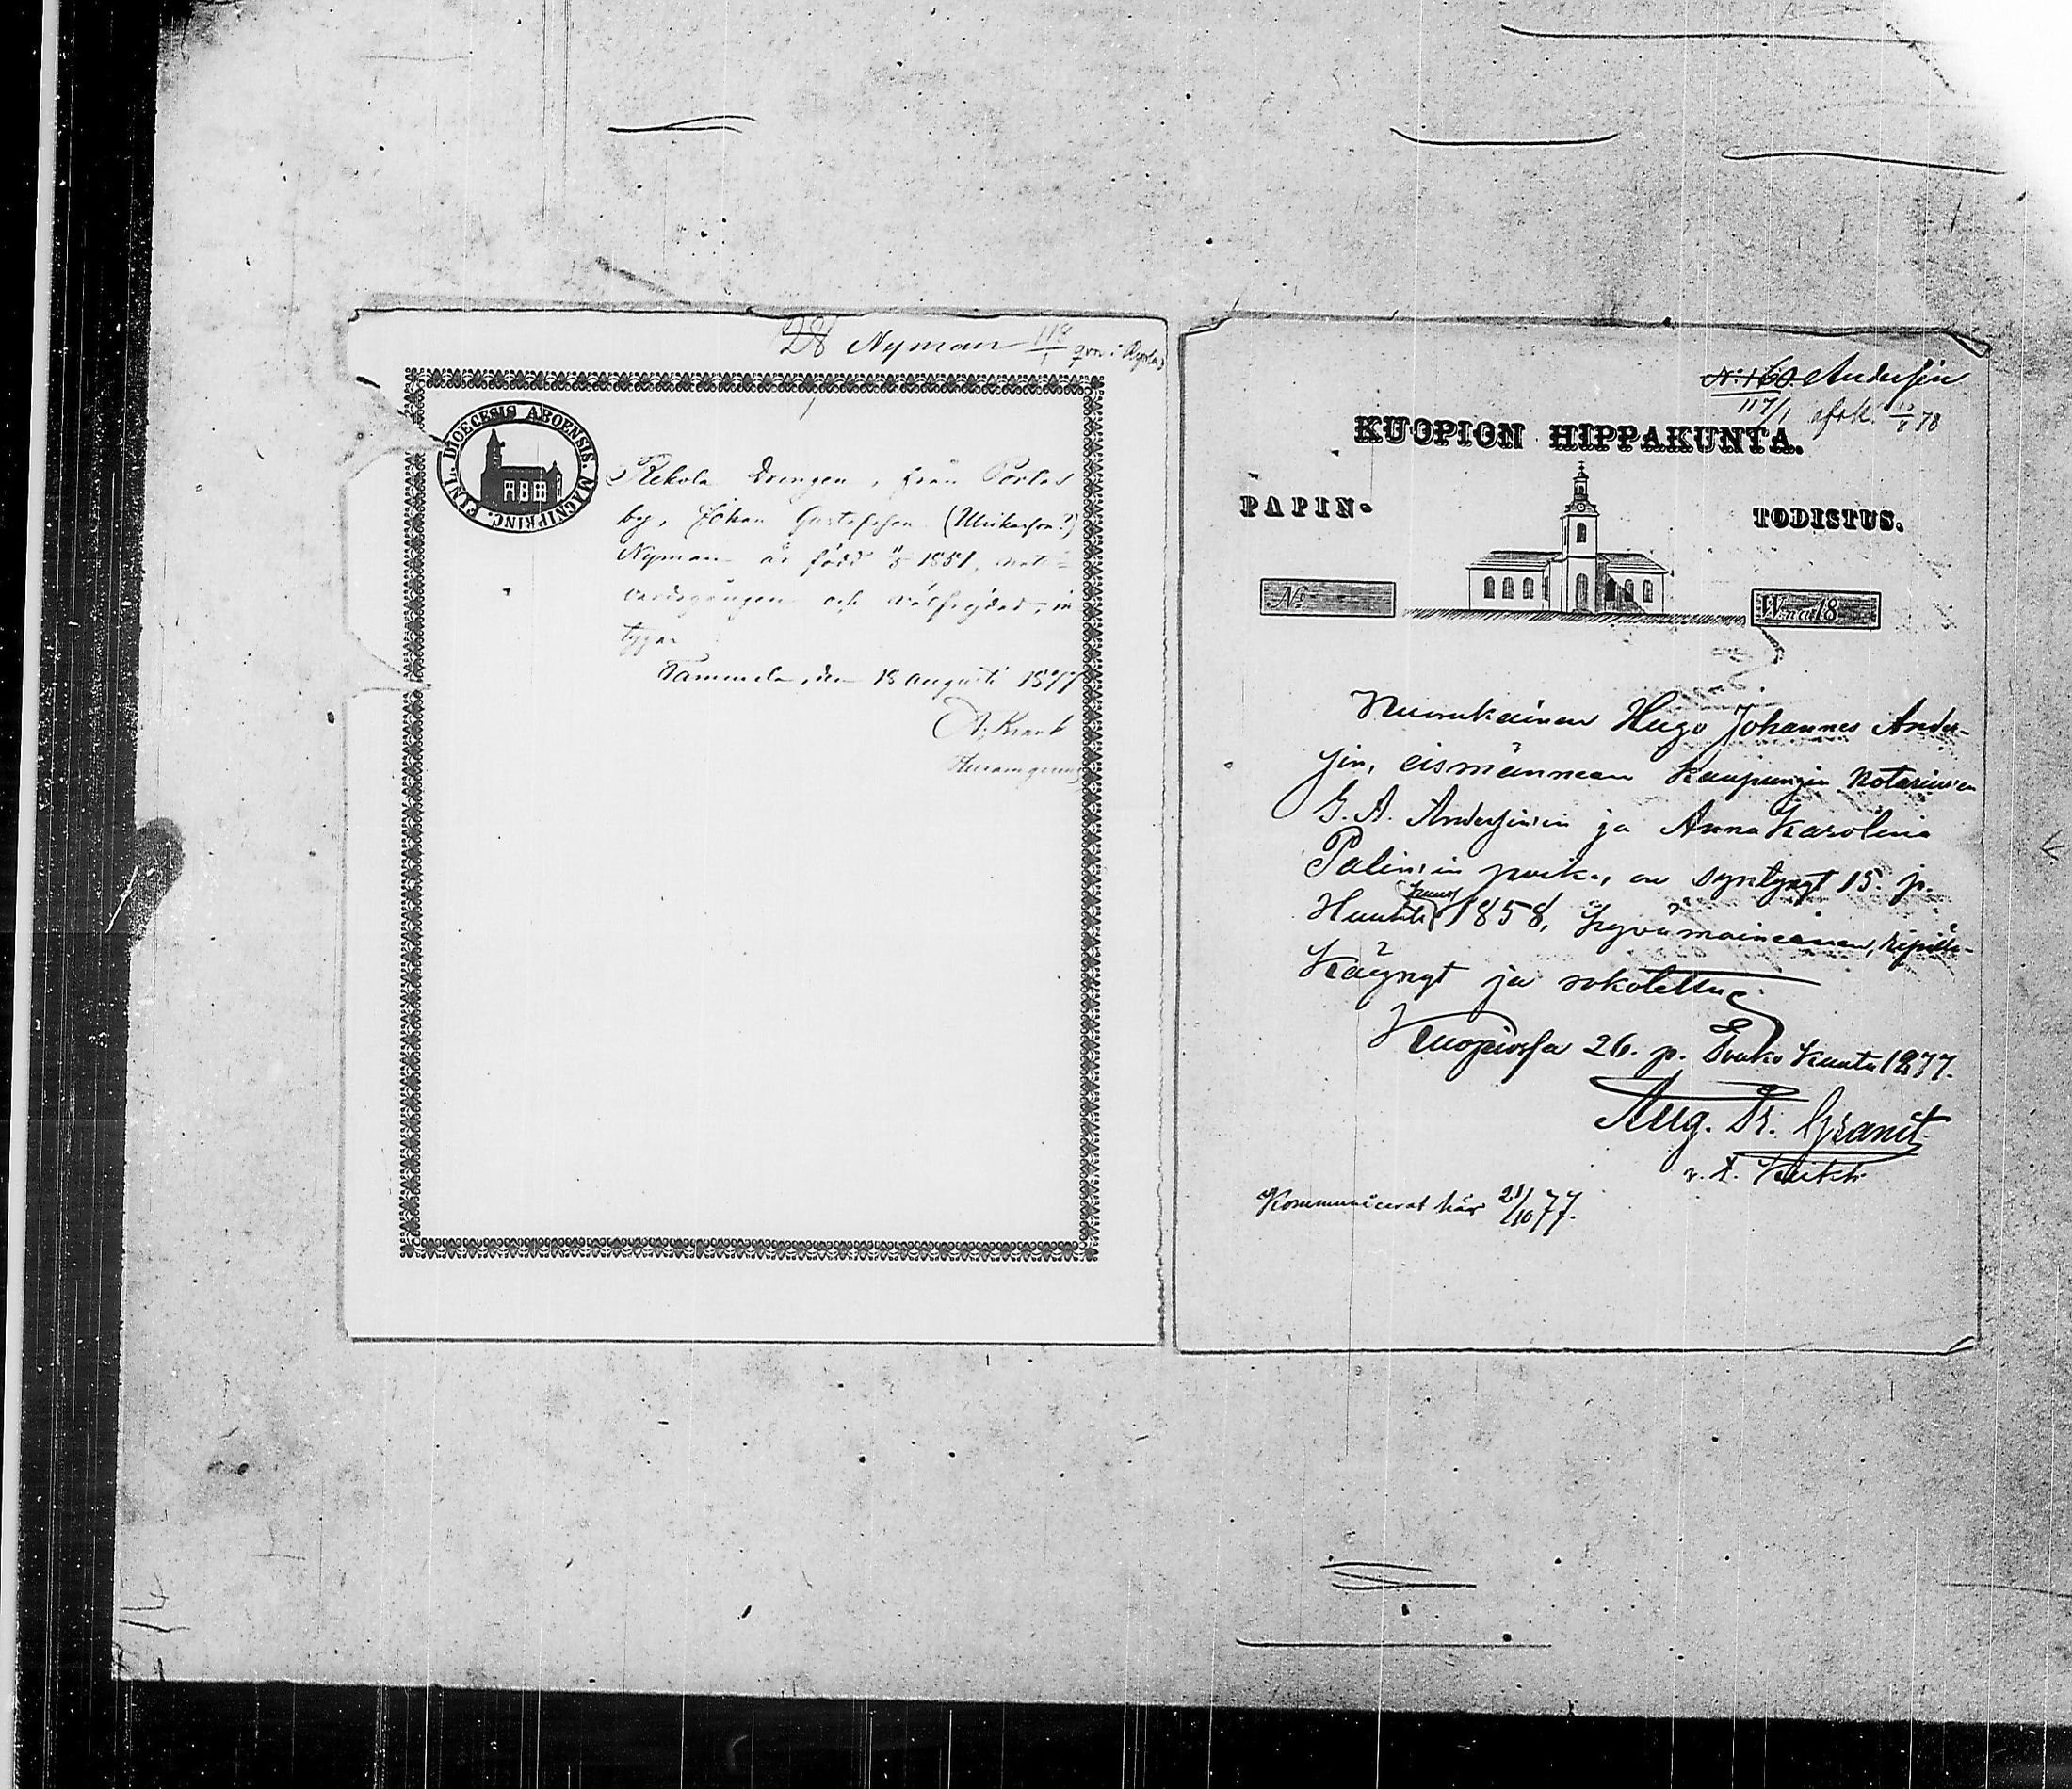 28 Nyman
DIOECESIS ABOENSIS. MAGNI PRINC. FINL.
Rekola drengen, från Portas
by, Johan Gustafsson (Ulriksson?)
Nyman är född 1851, natt-
vardsgången och välfrejdad, in
tygar
Tammela den 18 augusti 1877
N:o 160 Andersin
117/1 78
KUOPION HIPPAKUNTA.
PAPIN- TODISTUS.
N:o W:na 18
Nuorukainen Hugo Johannes Ander-
sin, eismännean Kaupungin Notarius'en
G. A. Andersin'in ja Anna Karolina
Palin'in poika, on syntynyt 15. p.
Huhtik. 1858, hyvämaineinen, ripillä-
käynyt ja rokotettu
Kuopiossa 26. p. Touko kuuta 1877.
Aug. Fr. Granit
v. t. Kirkh.
Kommunicerat här 21/10 77.